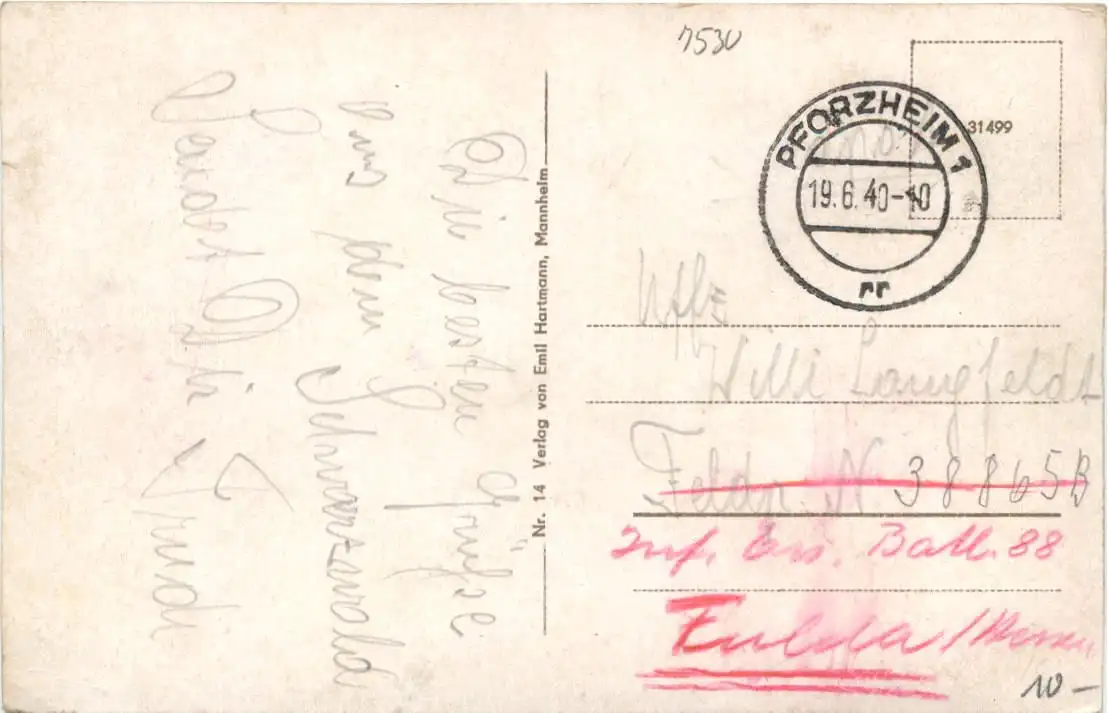 7530
PFORZHEIM 1
19.6.40-10
rr
31499
Die besten Grüße
aus dem Schwarzwald
sendet Dir
Trudi
Nr. 14 Verlag von Emil Hartmann, Mannheim
Uffz
Willi Langfeldt
Feldp. N 38865B
Inf. Ers. Batl. 88
Fulda / Hessen
10 -